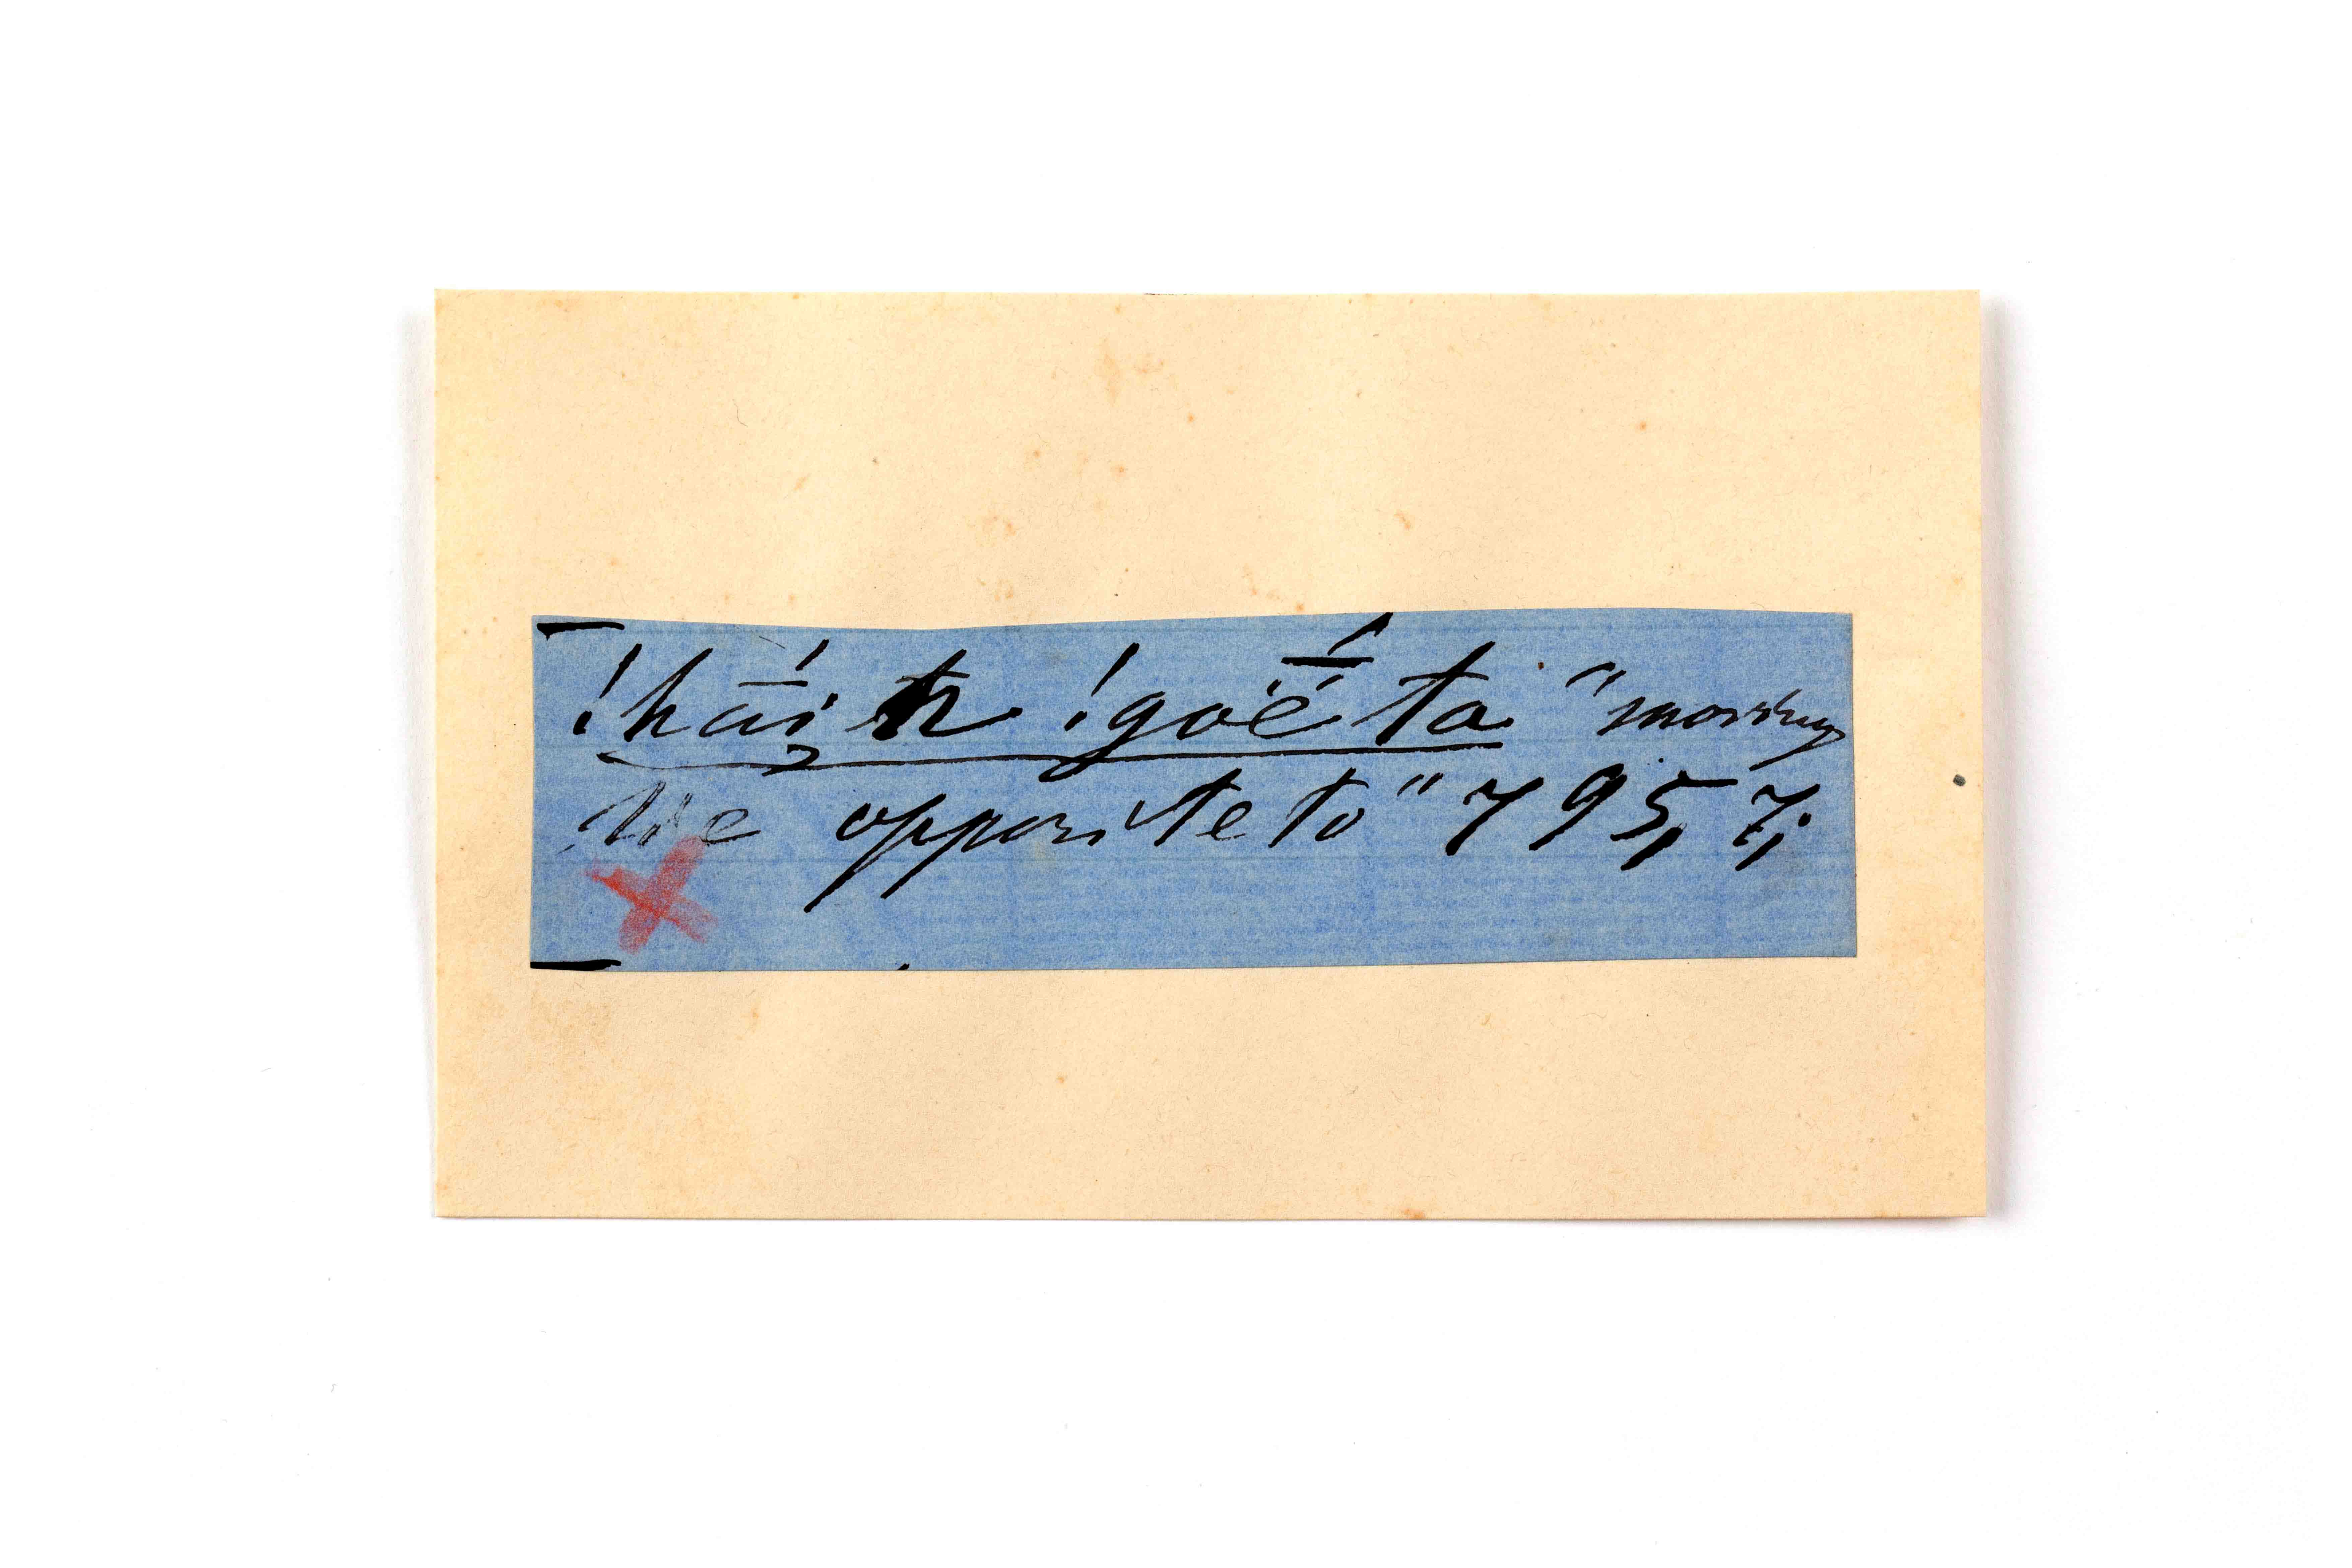 !hā́i tn !gōë́ ta "moving
the opposite to" 795, 7;